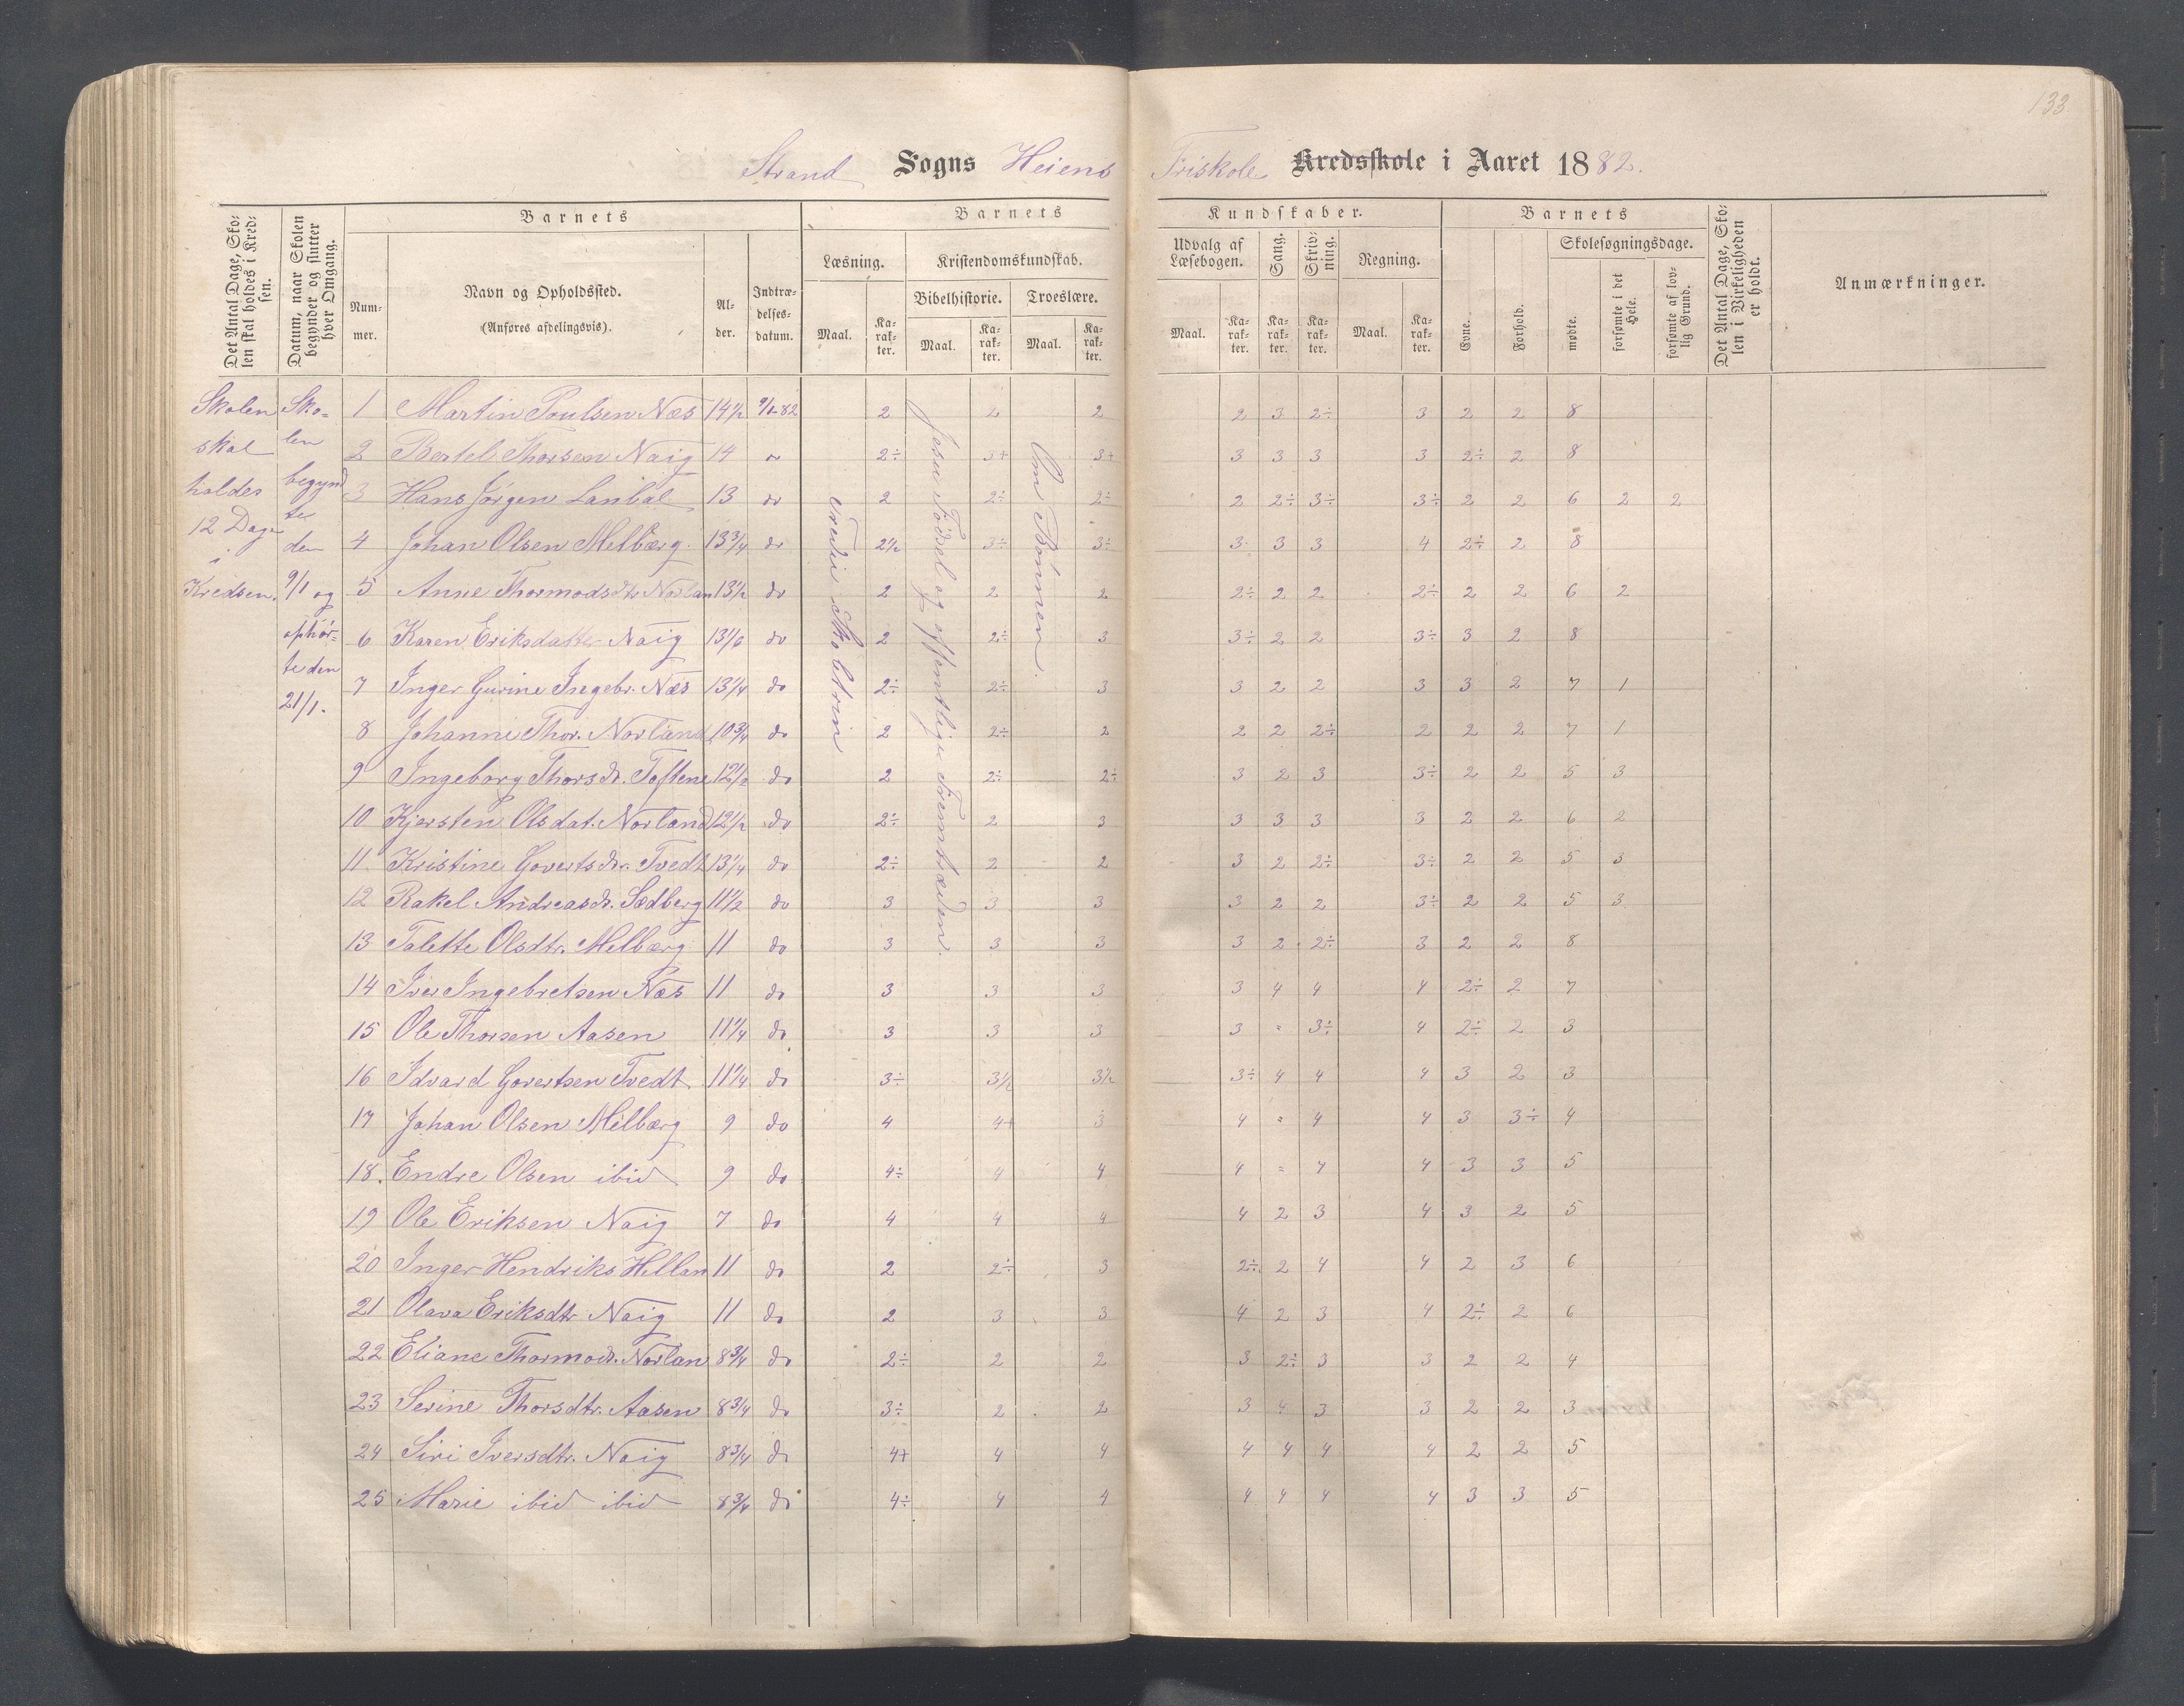 133
Strand Sogns Heiens Friskole Kredsskole i Aaret 1882.
Det Antal Dage, Skolen skal holdes i Kredsen.
Datum, naar Skolen begynder og slutter hver Omgang.
Barnets
Nummer.
Navn og Opholdssted.
(Anføres afdelingsvis).
Alder.
Indtrædelsesdatum.
Barnets Kundskaber.
Læsning.
Maal.
Karakter.
Kristendomskundskab.
Bibelhistorie.
Maal.
Karakter.
Troeslære.
Maal.
Karakter.
Udvalg af Læsebogen.
Maal.
Karakter.
Sang.
Karakter.
Skrivning.
Karakter.
Regning.
Maal.
Karakter.
Barnets
Evne.
Forhold.
Skolesøgningsdage.
mødte.
forsømte i det Hele.
forsømte af lovlig Grund.
Det Antal Dage, Skolen i Virkeligheden er holdt.
Anmærkninger.
Skolen skal holdes 12 Dage i Kredsen.
Skolen begyndte den 9/1 og ophørte den 21/1.
Jesu Fødsel og offentlige Fremtræden.
Om Bønnen.
1 Martin Poulsen Næs 14½ 9/1-82 2 2 2 2 3 2÷ 3 2 2 8
2 Bertel Thorsen Naig 14 2÷ 3+ 3+ 3 3 3 3 2÷ 2 8
3 Hans Jørgen 13 do 2 2÷ 2÷ 2 2÷ 3÷ 3÷ 2 2 6 2 2
4 Johan Olsen Melbærg 13¾ do 2½ 3÷ 3÷ 3 3 3 4 2÷ 2 8
5 Anne Thormodsdtr Norlan 13½ do 2 2 2 2÷ 2 2 2÷ 2 2 6 2
6 Karen Eriksdatter Naig do 2 2÷ 3 3÷ 2 2 3÷ 3 2 8
7 Inger Gurine Ingebr. Næs 13¼ do 2÷ 2÷ 3 3 2 2 3 3 2 7 1
8 Johanne Thor. Norland 10¾ do 2 2÷ 2 2 2 2÷ 2 2 2 7 1
9 Ingeborg Thorsdr. Toftene 12½ do 2 2÷ 2÷ 3 2 3 3÷ 2 2 5 3
10 Kjersten Olsdat. Norland 12½ do 2÷ 2 3 3 3 3 3 2 2 6 2
11 Kristine Govertsdr. Tvedt 13¼ do 2÷ 2 2 3 2 2÷ 3÷ 2 2 5 3
12 Rakel Andreasdr. Sædberg 11½ do 3 3 3 3 2 2 3÷ 2 2 5 3
13 Talette Olsdtr. Melbærg 11 do 3 3 3 3 2 2÷ 3 2 2 8
14 Iver Ingebretsen Næs 11 do 3 3 3 3 4 4 4 2÷ 2 7
15 Ole Thorsen Aasen 11¼ do 3 3 3 3 " 3÷ 4 2÷ 2 3
16 Edvard Govertsen Tvedt 11¼ do 3÷ 3½ 3½ 3÷ 4 4 4 3 2 3
17 Johan Olsen Melbærg 9 do 4 4+ 3 4 " 4 4 3 3÷ 4
18. Endre Olsen ibid 9 do 4÷ 4 4 4 " 4 4 3 3 5
19 Ole Eriksen Naig 7 do 4 4 4 4 2 3 4 3 2 5
20 Inger Hendriks Hellan 11 do 2 2÷ 3 2÷ 2 4 4 2 3 6
21 Olava Eriksdtr Naig 11 do 2 3 3 4 2 3 4 2÷ 2 6
22 Eliane Thormodr. Norlan 8¾ do 2÷ 2 2 3 2÷ 3 3 2 2 4
23 Serine Thorsdtr. Aasen 8¾ do 3÷ 2 2 3 4 3 3 2 2 3
24 Siri Iversdtr. Naig 8¾ do 4+ 4 4 4 4 4 4 2 2 5
25 Marie ibid ibid 8¾ do 4÷ 4 4 4 4 4 4 3 3 5